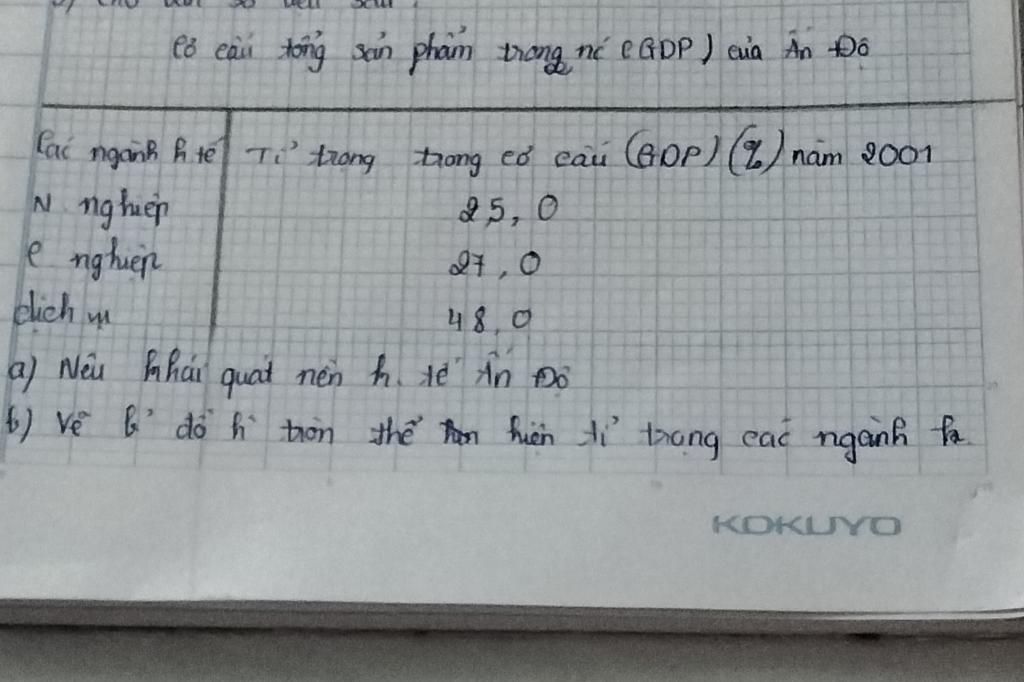 cho bản số liệu sau:
Cơ cấu tổng sản phẩm trong nc (GDP) của Ấn Độ
Các ngành k tế Tỉ trọng trong cơ cấu (GDP) (%) năm 2001
N nghiệp 25,0
C nghiệp 27,0
dịch vụ 48,0
a) Nêu khái quát nền k. tế Ấn Độ
b) Vẽ b' đồ h` tròn thể hiện tỉ trọng các ngành
KOKUYO